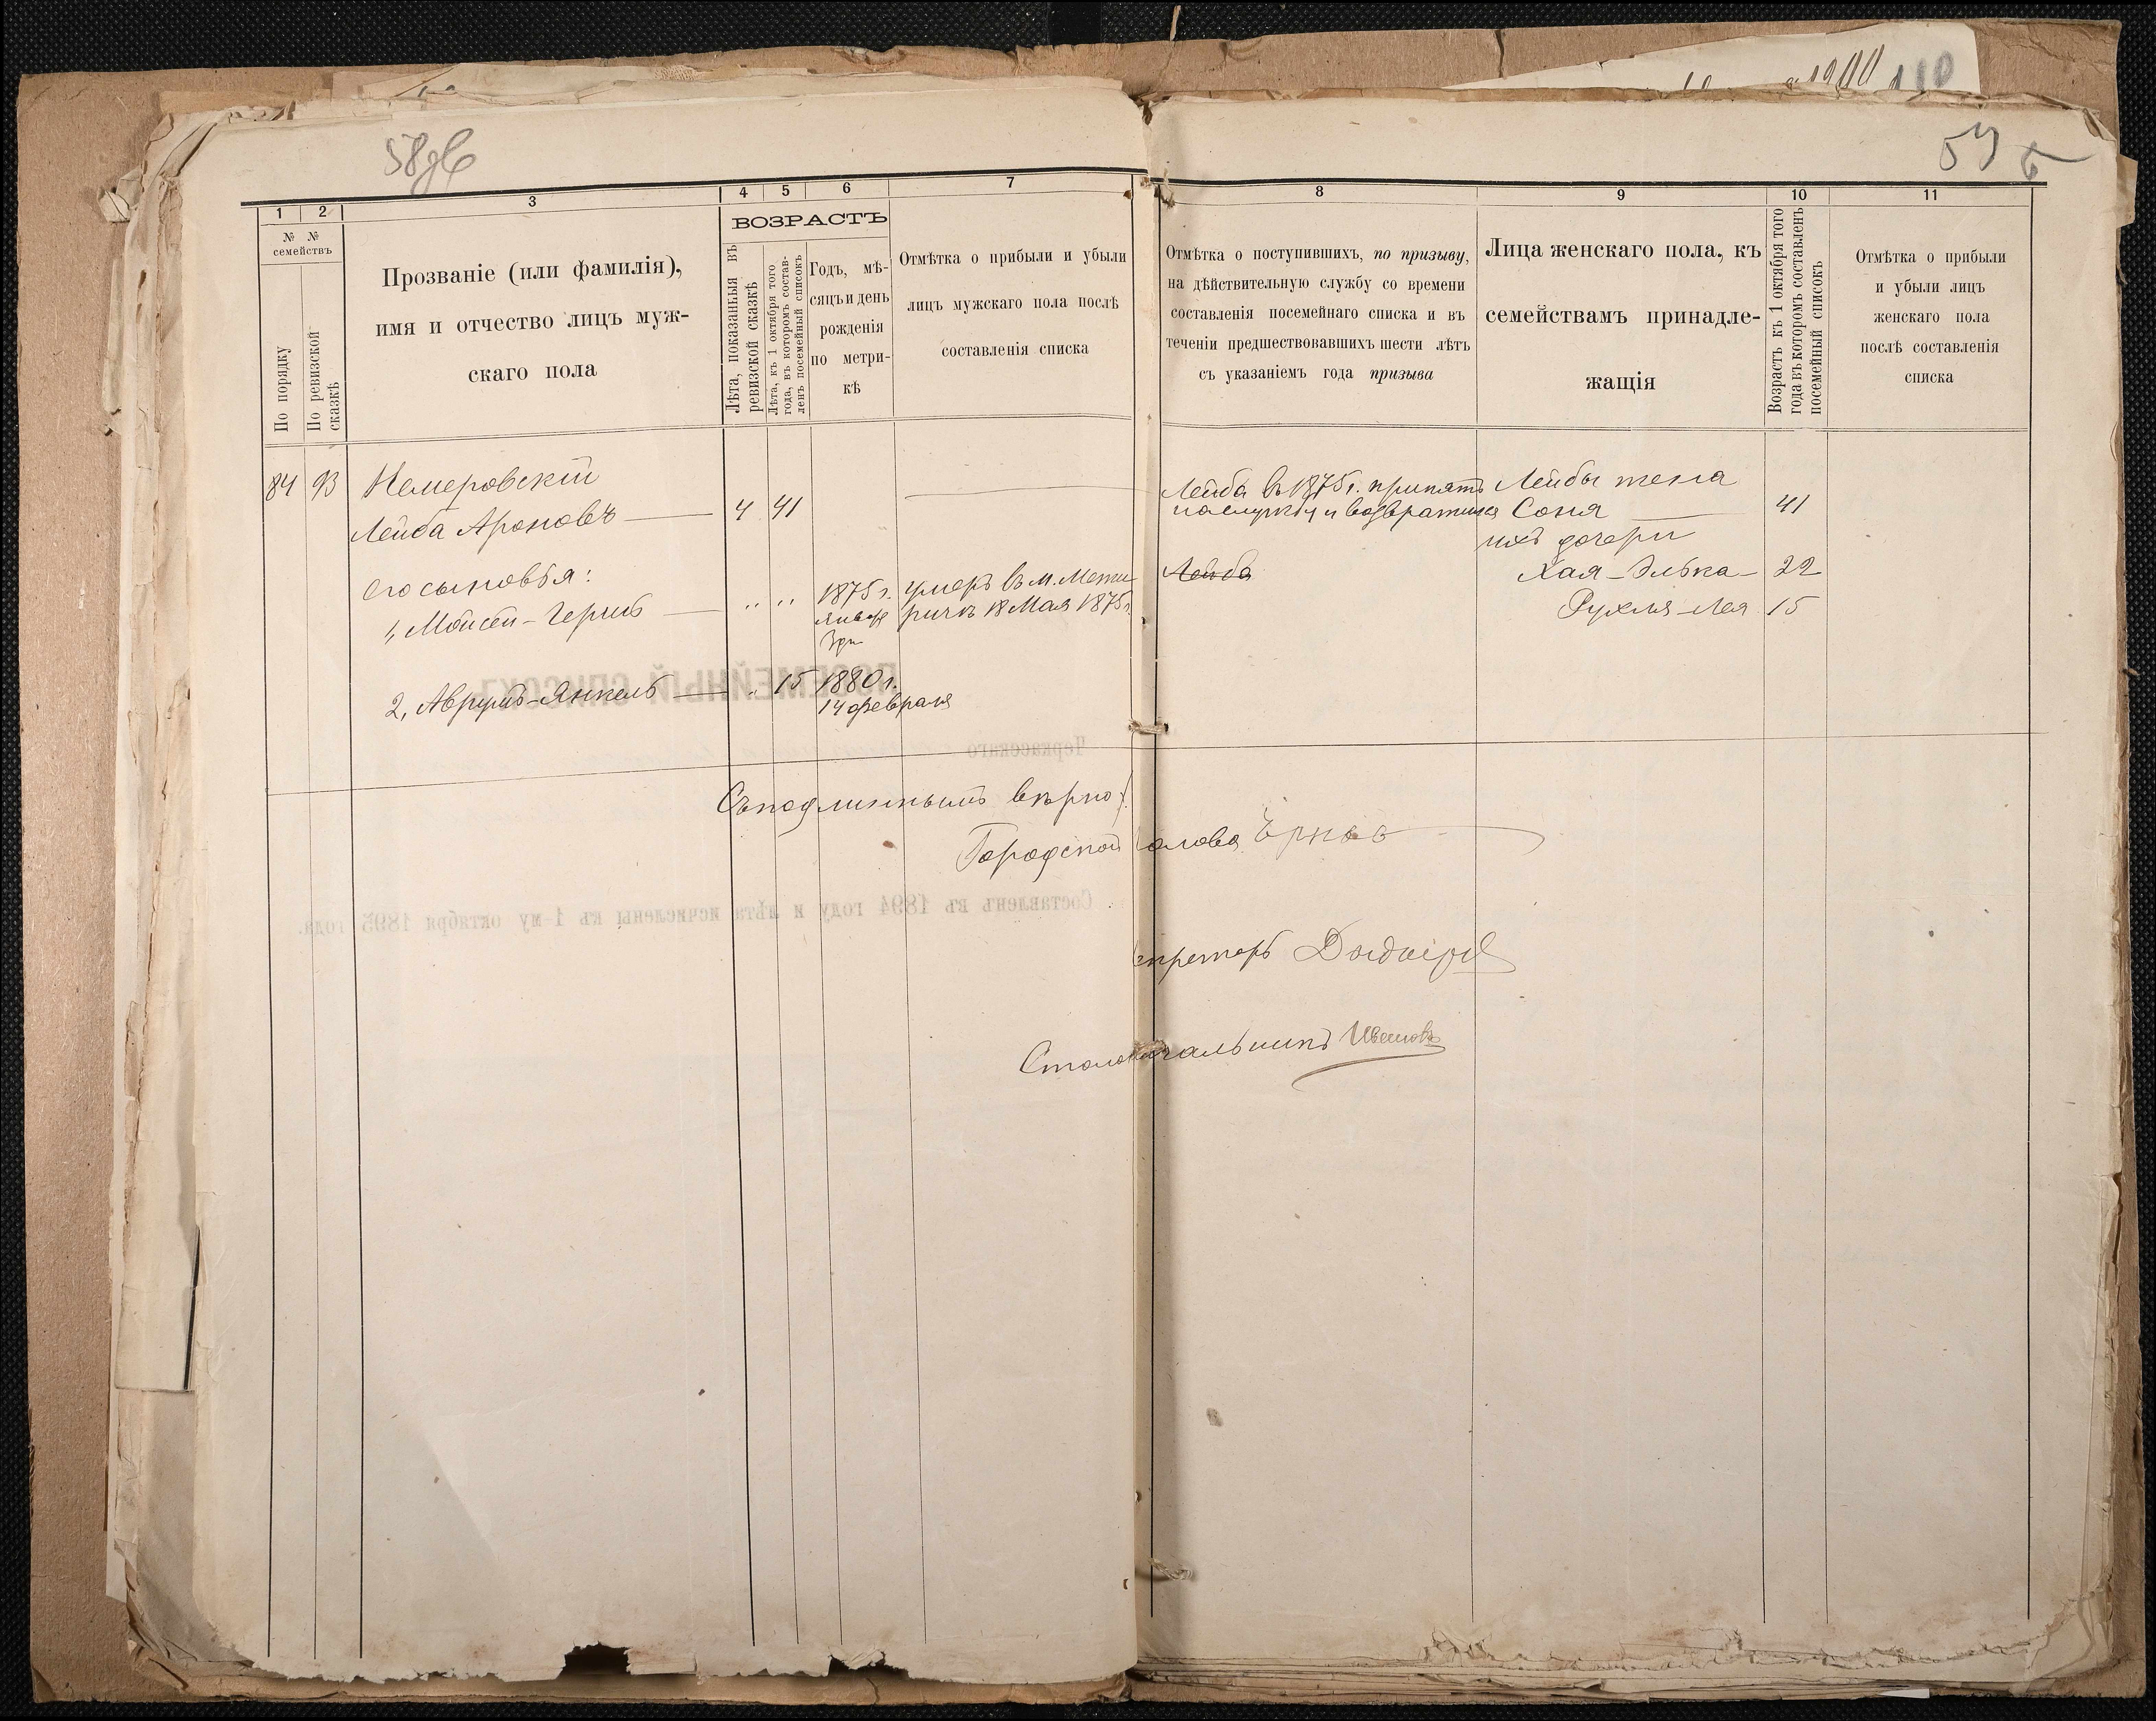 1900 110
58об
59
1
2
3
4
5
6
7
8
9
10
11
№ №
семействъ
По порядку
По ревизской
сказкѣ
Прозваніе (или фамилія),
имя и отчество лицъ муж-
скаго пола
ВОЗРАСТЪ
Лѣта, показанныя въ
ревизской сказкѣ
Лѣта, къ 1 октября того
года, въ которомъ состав-
ленъ посемейный списокъ
Годъ, мѣ-
сяцъ и день
рожденія
по метри-
кѣ
Отмѣтка о прибыли и убыли
лицъ мужскаго пола послѣ
составленія списка
Отмѣтка о поступившихъ, по призыву,
на дѣйствительную службу со времени
составленія посемейнаго списка и въ
теченіи предшествовавшихъ шести лѣтъ
съ указаніемъ года призыва
Лица женскаго пола, къ
семействамъ принадле-
жащія
Возрастъ къ 1 октября того
года въ которомъ составленъ
посемейный списокъ
Отмѣтка о прибыли
и убыли лицъ
женскаго пола
послѣ составленія
списка
84 93 Немеровскій
Лейба Ароновъ — 4 41
Лейба въ 1875 г. принятъ
на службу и возвратился
Лейбы жена
Соня — 41
ихъ дочери
Хая-Элька- 22
Рухля-Лея 15
Его сыновья:
1, Мойсей-Гершъ — " " 1875 г.
Января
3 дн
умеръ въ м. Межи
ричъ 18 Мая 1875 г.
Лейба
2, Аврумъ-Янкель — " 15 1880 г.
14 февраля
ПОСЕМЕЙНЫЙ СПИСОКЪ
Черкасскаго
Съ подлиннымъ вѣрно:
Городской Голова
Составленъ въ 1894 году и лѣта исчислены къ 1-му октября 1895 года.
Секретарь
Столоначальникъ Ивановъ